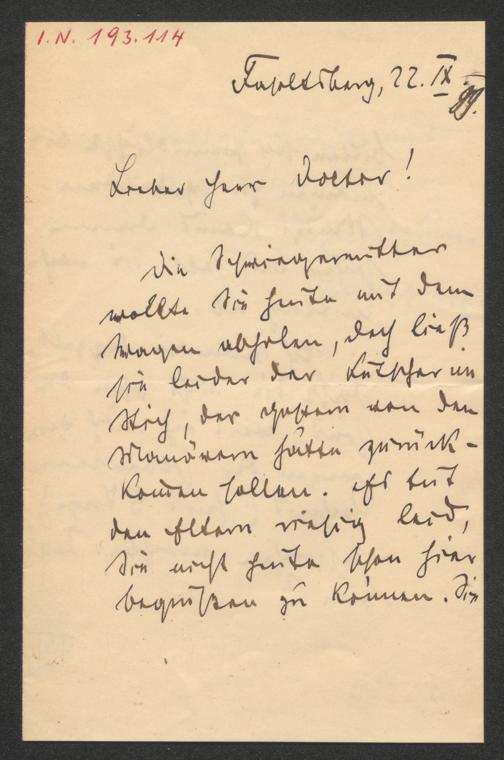 I.N. 193.114
Fasoltsberg, 22. IX
99.
Lieber Herr Doctor!
Die Schwiegermutter
wollte Sie heute mit dem
Wagen abholen, doch ließ
sie leider der Kutscher im
Stich, der gestern von den
Manövern hätte zurück-
kommen sollen. Es tut
den Eltern riesig leid,
Sie nicht heute schon hier
begrüßen zu können. Sie